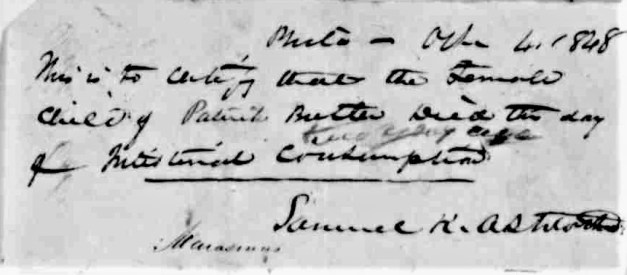 Phila – 4. 1848
This is to certify that the Female
Child of Patrick Butler Died this day
two years age
of Intestinal Consumption
Samuel K. Ashton
Marasmus